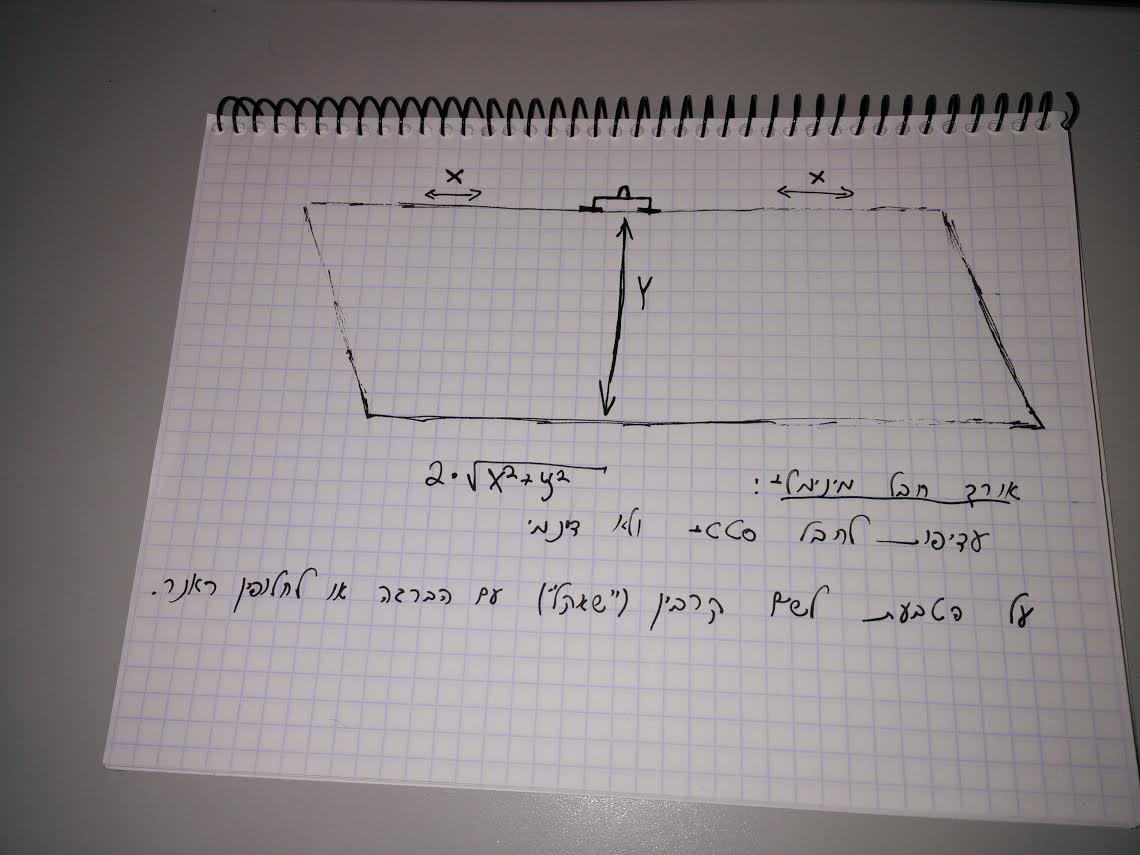 x x
Y
אורך חבל מינימלי: 2·√x²+y²
עדיפות לחבל סטטי ולא דינמי
על הטבעת לשים קרבין ("שאקל") עם הברגה או לחלופין ראנר.